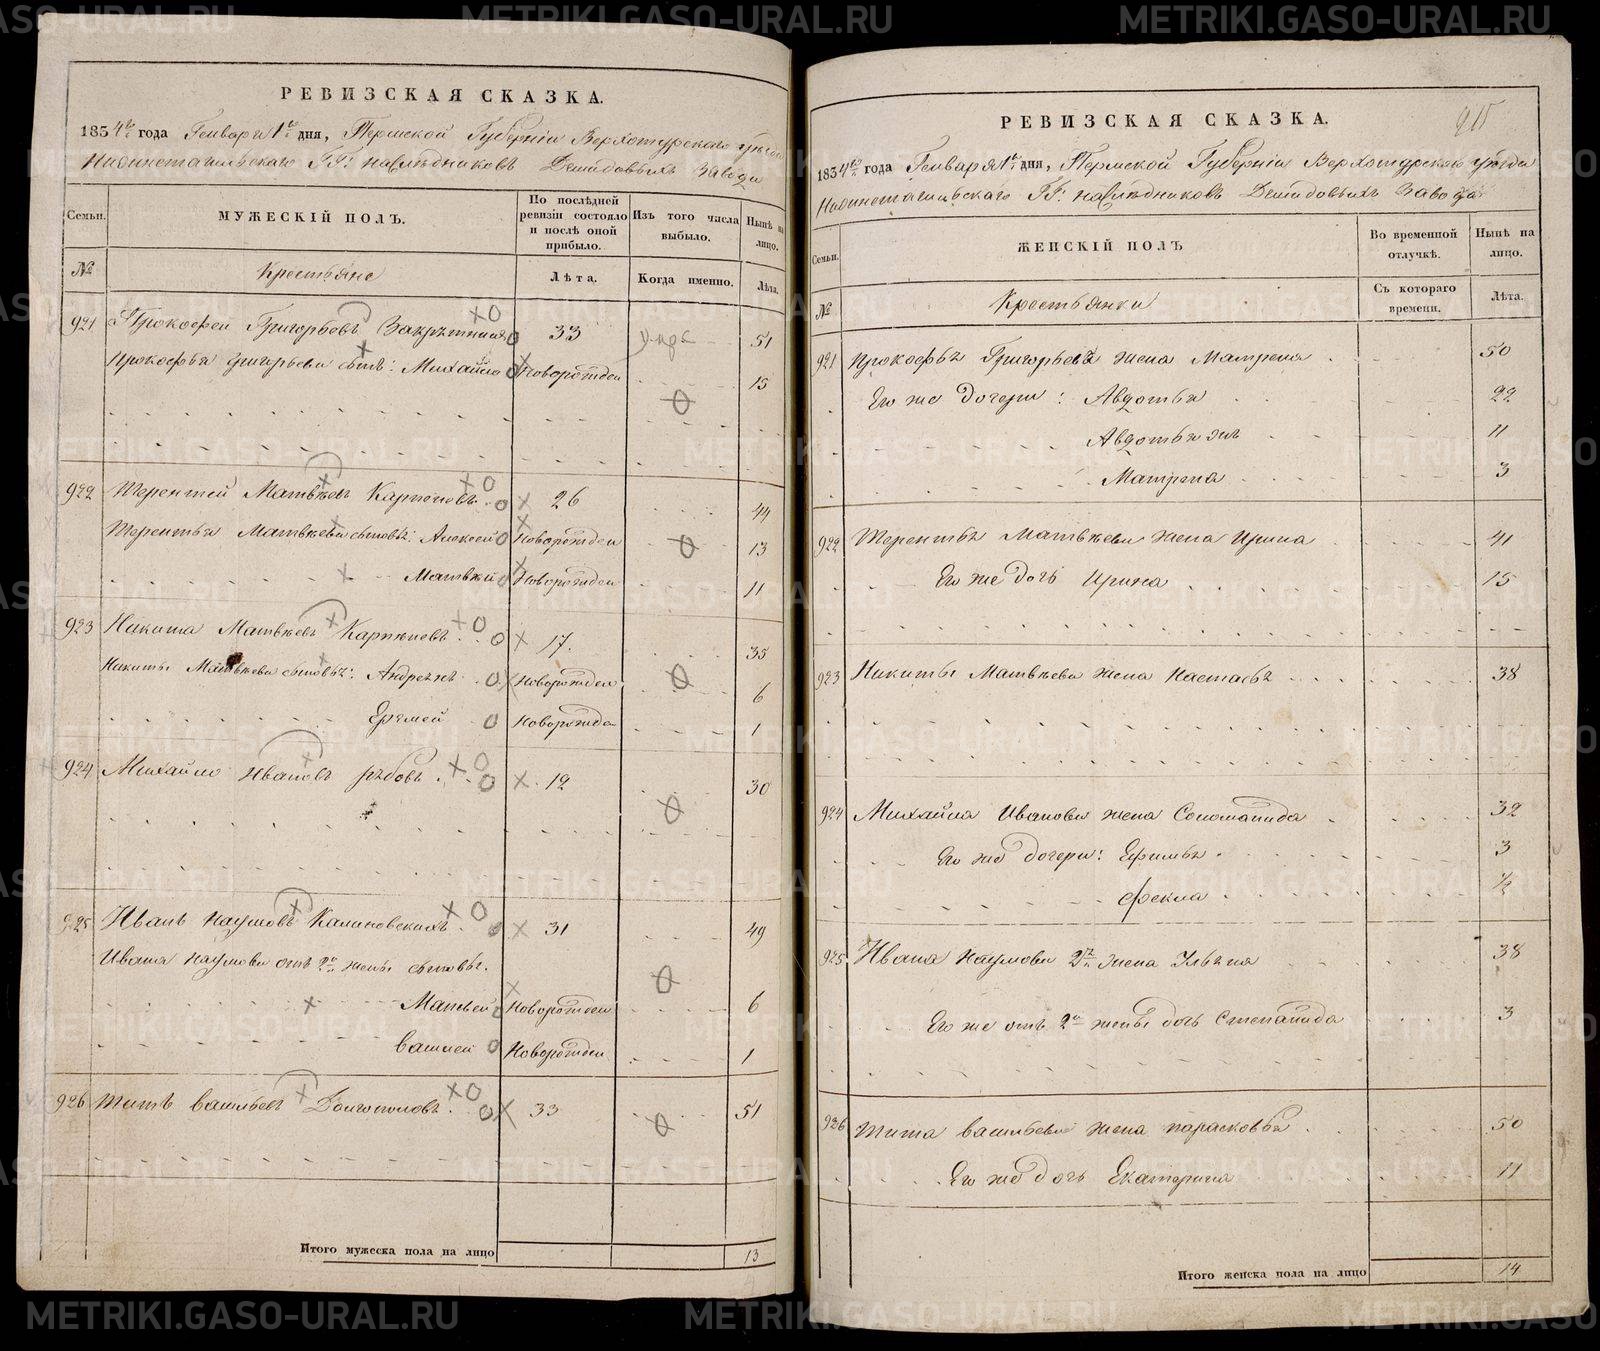 РЕВИЗСКАЯ СКАЗКА.
1834го года Генваря 1го дня, Пермской Губернiи Верхотурскаго уезда
Нижнетагильскаго ГГ: наследниковъ Демидовыхъ завода
Семьи.
МУЖЕСКIЙ ПОЛЪ.
По последней ревизiи состояло и послѣ оной прибыло.
Изъ того числа выбыло.
Нынѣ на лицо.
№
Крестьяне
Лѣта.
Когда именно.
Лѣта.
921 Прокофей Григорьевъ 33 51
Прокофья Григорьева сынъ: Михайло Новорожден 15
922 Терентей Матвѣевъ Карповъ 26 44
Терентья Матвѣева сыновья: Алексей Новорожден 13
Матвѣй Новорожден 11
923 Никита Матвѣевъ 17. 35
Никиты Матвѣева сыновья: Андреянъ Новорожден 6
Еремей Новорожден 1
924 Михайло Ивановъ Рябовъ 12 30
925 Иванъ Наумовъ Калиновскихъ 31 49
Ивана Наумова отъ 2й жены сыновья.
Матвей Новорожден 6
Василей Новорожден 1
926 Титъ Васильевъ Долгополовъ 33 51
Итого мужеска пола на лицо 13
915
РЕВИЗСКАЯ СКАЗКА.
1834го года Генваря 1го дня, Пермской Губернiи Верхотурскаго уезда
Нижнетагильскаго ГГ: наследниковъ Демидовыхъ завода
Семьи.
ЖЕНСКIЙ ПОЛЪ
Во временной отлучкѣ.
Нынѣ на лицо.
№
Крестьянки
Съ котораго времени.
Лѣта.
921 Прокофья Григорьева жена Матрена 50
Его же дочери: Авдотья 22
Авдотья жъ 11
Матрена 3
922 Терентья Матвѣева жена Ирина 41
Его же дочь Ирина 15
923 Никиты Матвѣева жена Настасья 38
924 Михайла Иванова жена Соломанида 32
Его же дочери: Ефимья 3
Фекла ½
925 Ивана Наумова 2я жена Ульяна 38
Его же отъ 2й жены дочь Степанида 3
926 Тита Васильева жена Парасковья 50
Его же дочь Екатерина 11
Итого женска пола на лицо 14
METRIKI.GASO-URAL.RU